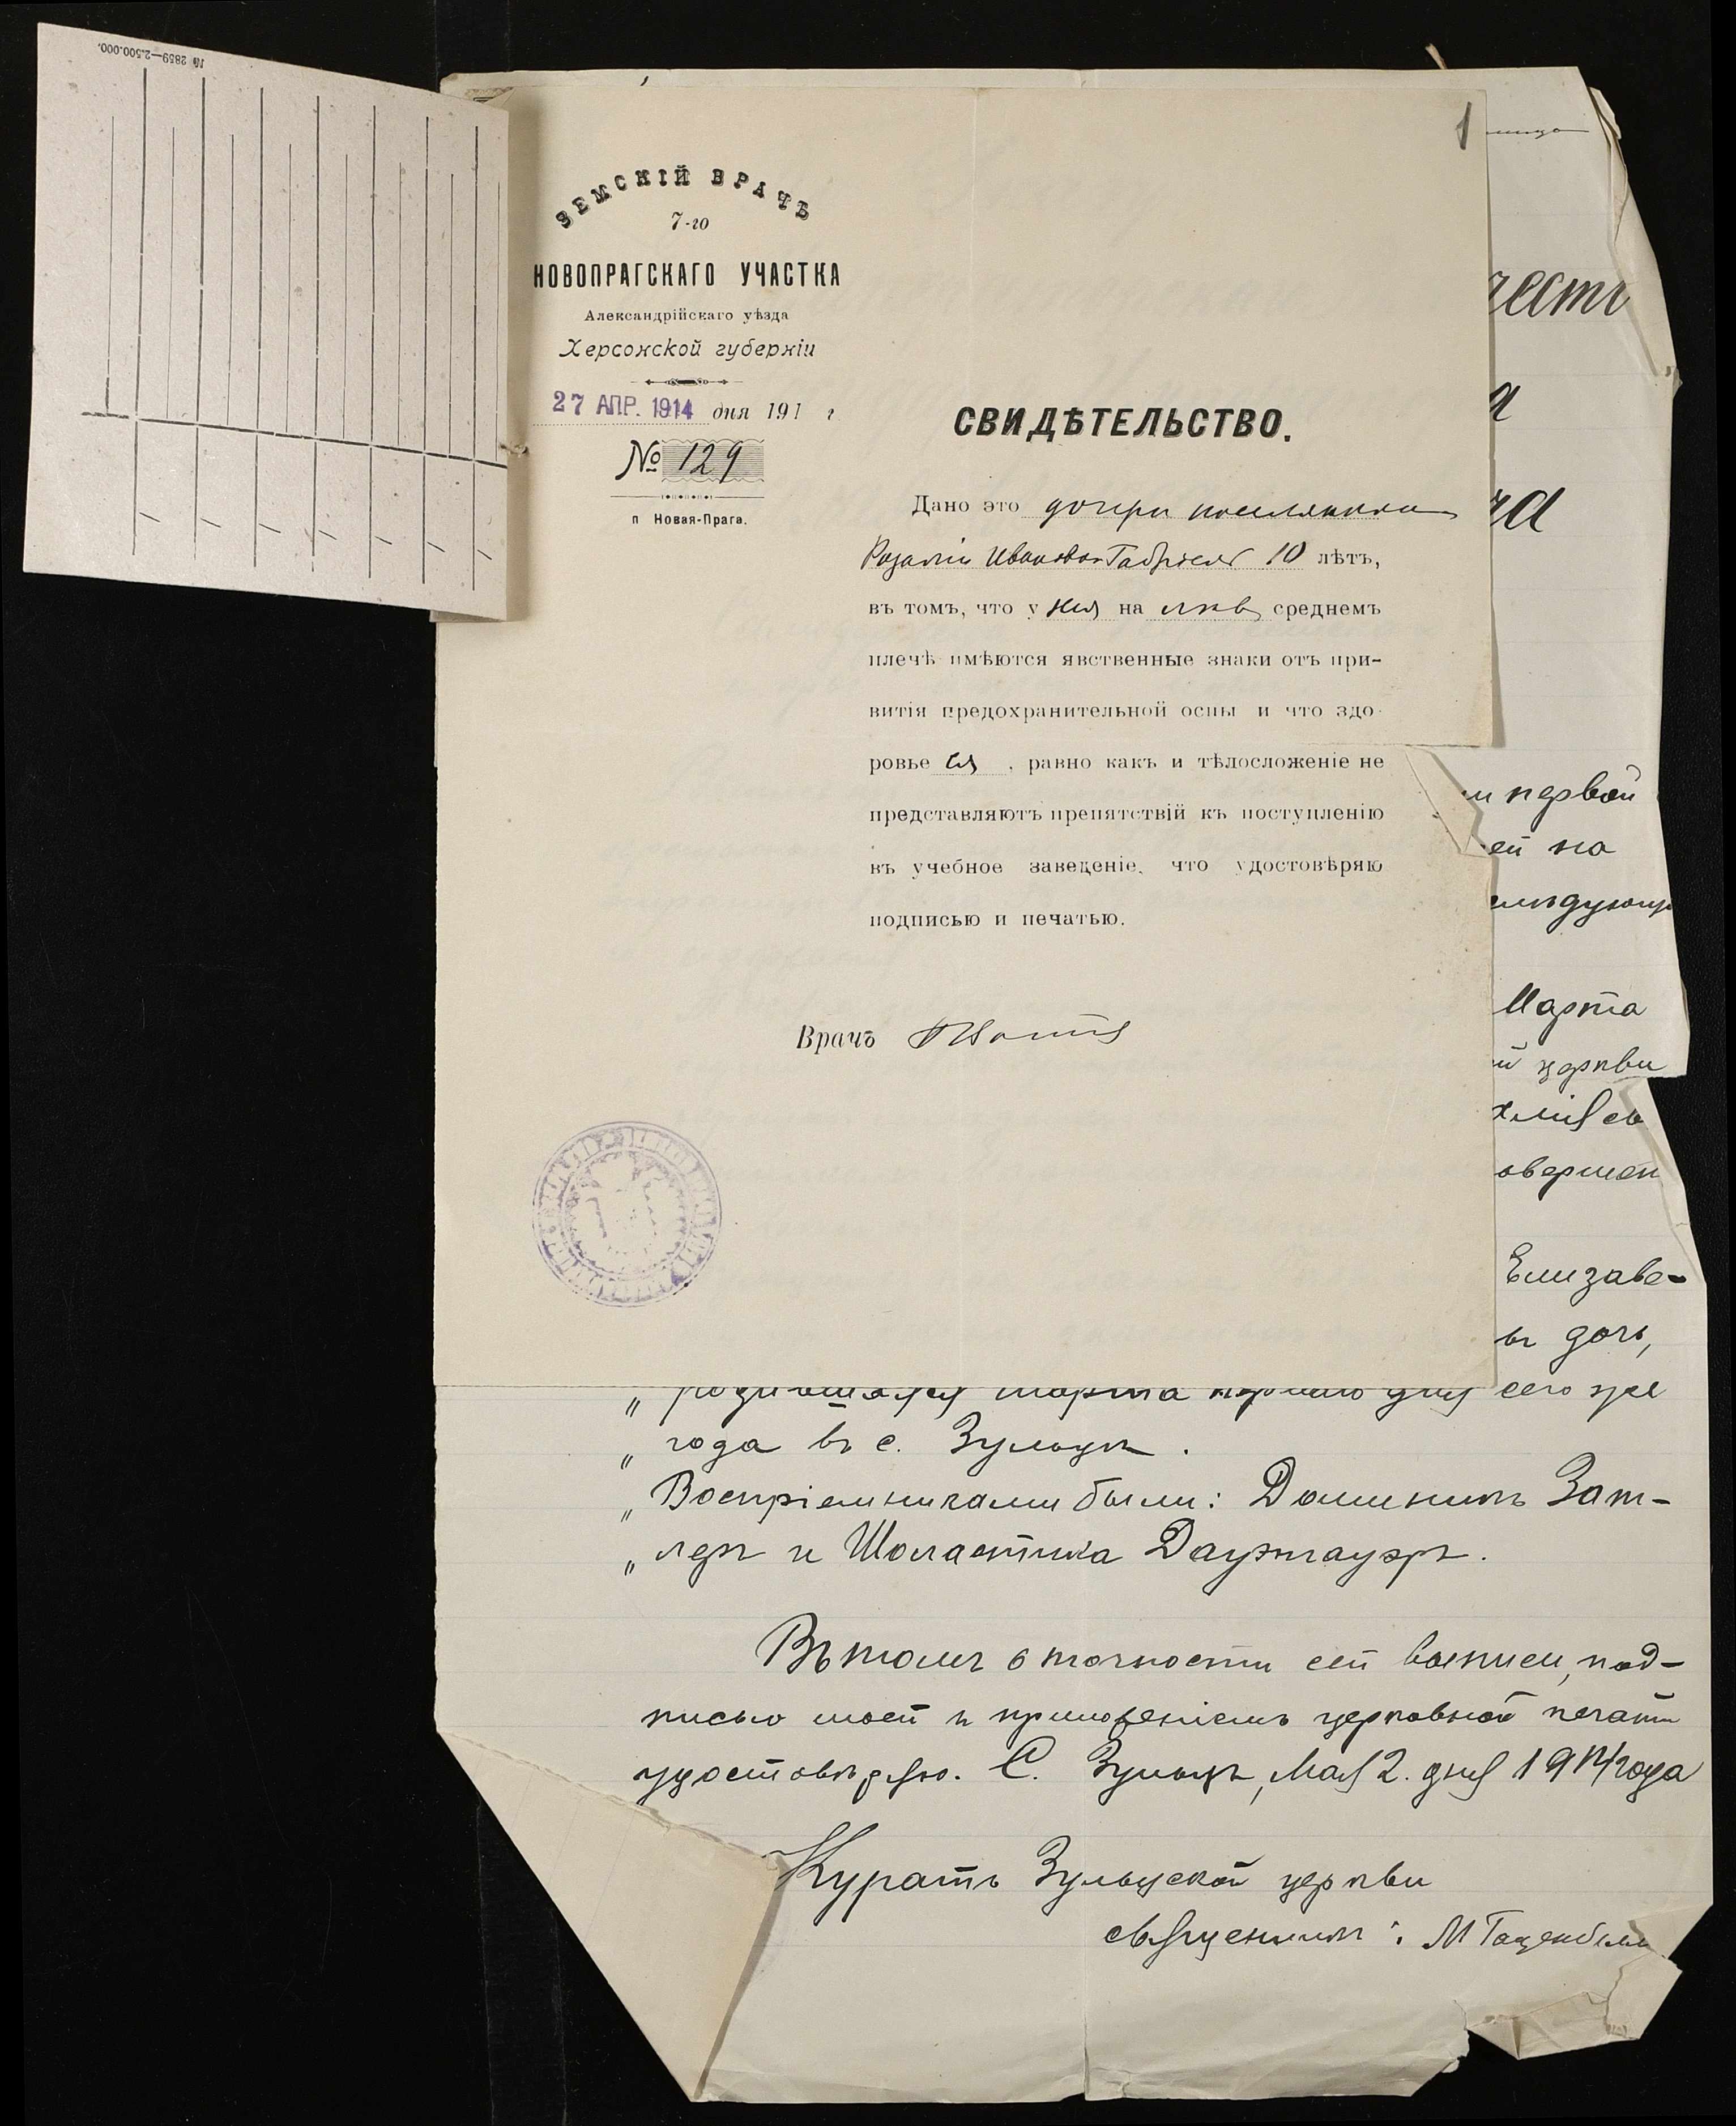 № 2859—2.500.000.
1
ЗЕМСКІЙ ВРАЧЪ
7-го
НОВОПРАГСКАГО УЧАСТКА
Александрійскаго уѣзда
Херсонской губерніи
27 АПР. 1914 дня 191 г
№ 129
п Новая-Прага.
СВИДѢТЕЛЬСТВО.
Дано это дочери поселянина
Розаліи Ивановой Габріель 10 лѣтъ,
въ томъ, что у нея на лѣв. среднемъ
плечѣ имѣются явственные знаки отъ при-
витія предохранительной оспы и что здо-
ровье ея, равно какъ и тѣлосложеніе не
представляютъ препятствій къ поступленію
въ учебное заведеніе, что удостовѣряю
подписью и печатью.
Врачъ
честь
а
на
первой
ей на
слѣдующ
Марта
й церкви
овершен
Елизаве-
ъ дочь,
„ родившаяся марта перваго дня сего же
„ года въ с. Зульцъ.
„ Воспріемниками были: Доминикъ Зат-
„ леръ и Шоластика Даужауэръ.
Въ томъ о точности сей выписи, под-
писью моей и приложеніемъ церковной печати
удостовѣряю. С. Зульцъ, Мая 2. дня 1914 года
Куратъ Зульцской церкви
священникъ: М